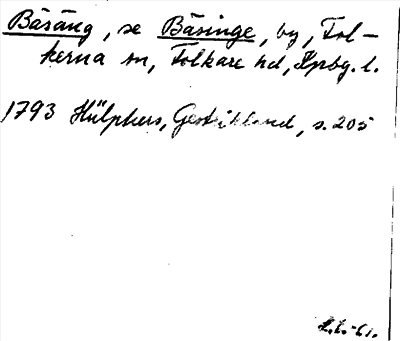 Bäsäng, se Bäsinge, by, Fol-
kerna sn, Folkare hd, Kpbg. l.
1793 Hülphers, Gestrikland, s. 205